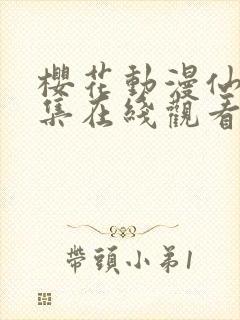 櫻花動漫仙
集在綫觀看
帶頭小弟1